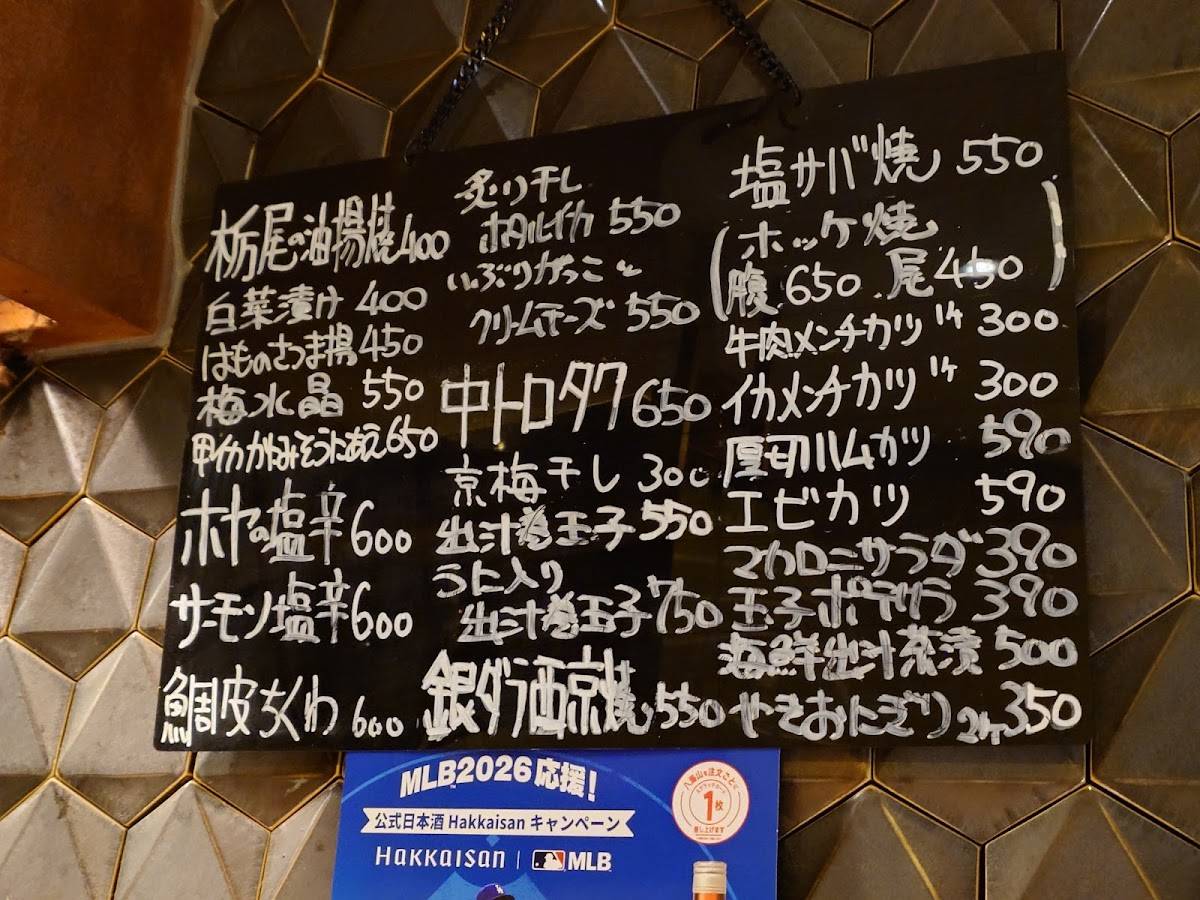 栃尾の油揚焼400
白菜漬け 400
はものさつま揚 450
梅水晶 550
甲イカかにみそうにあえ650
ホヤの塩辛600
サーモン塩辛600
鯛皮ちくわ 600
炙り干し
ホタルイカ 550
いぶりがっこと
クリームチーズ 550
中トロタク650
京梅干し 300
出汁巻玉子550
うに入り
出汁巻玉子750
銀ダラ西京焼550
塩サバ焼 550
ホッケ焼
(腹 650 尾450)
牛肉メンチカツ1ケ 300
イカメンチカツ1ケ 300
厚切ハムカツ 590
エビカツ 590
マカロニサラダ390
玉子ポテサラ390
海鮮出汁茶漬500
やきおにぎり2ケ350
MLB2026応援!
公式日本酒 Hakkaisan キャンペーン
HAKKAISAN | MLB
八海山を注文ごとに
スクラッチカード
1枚
差し上げます